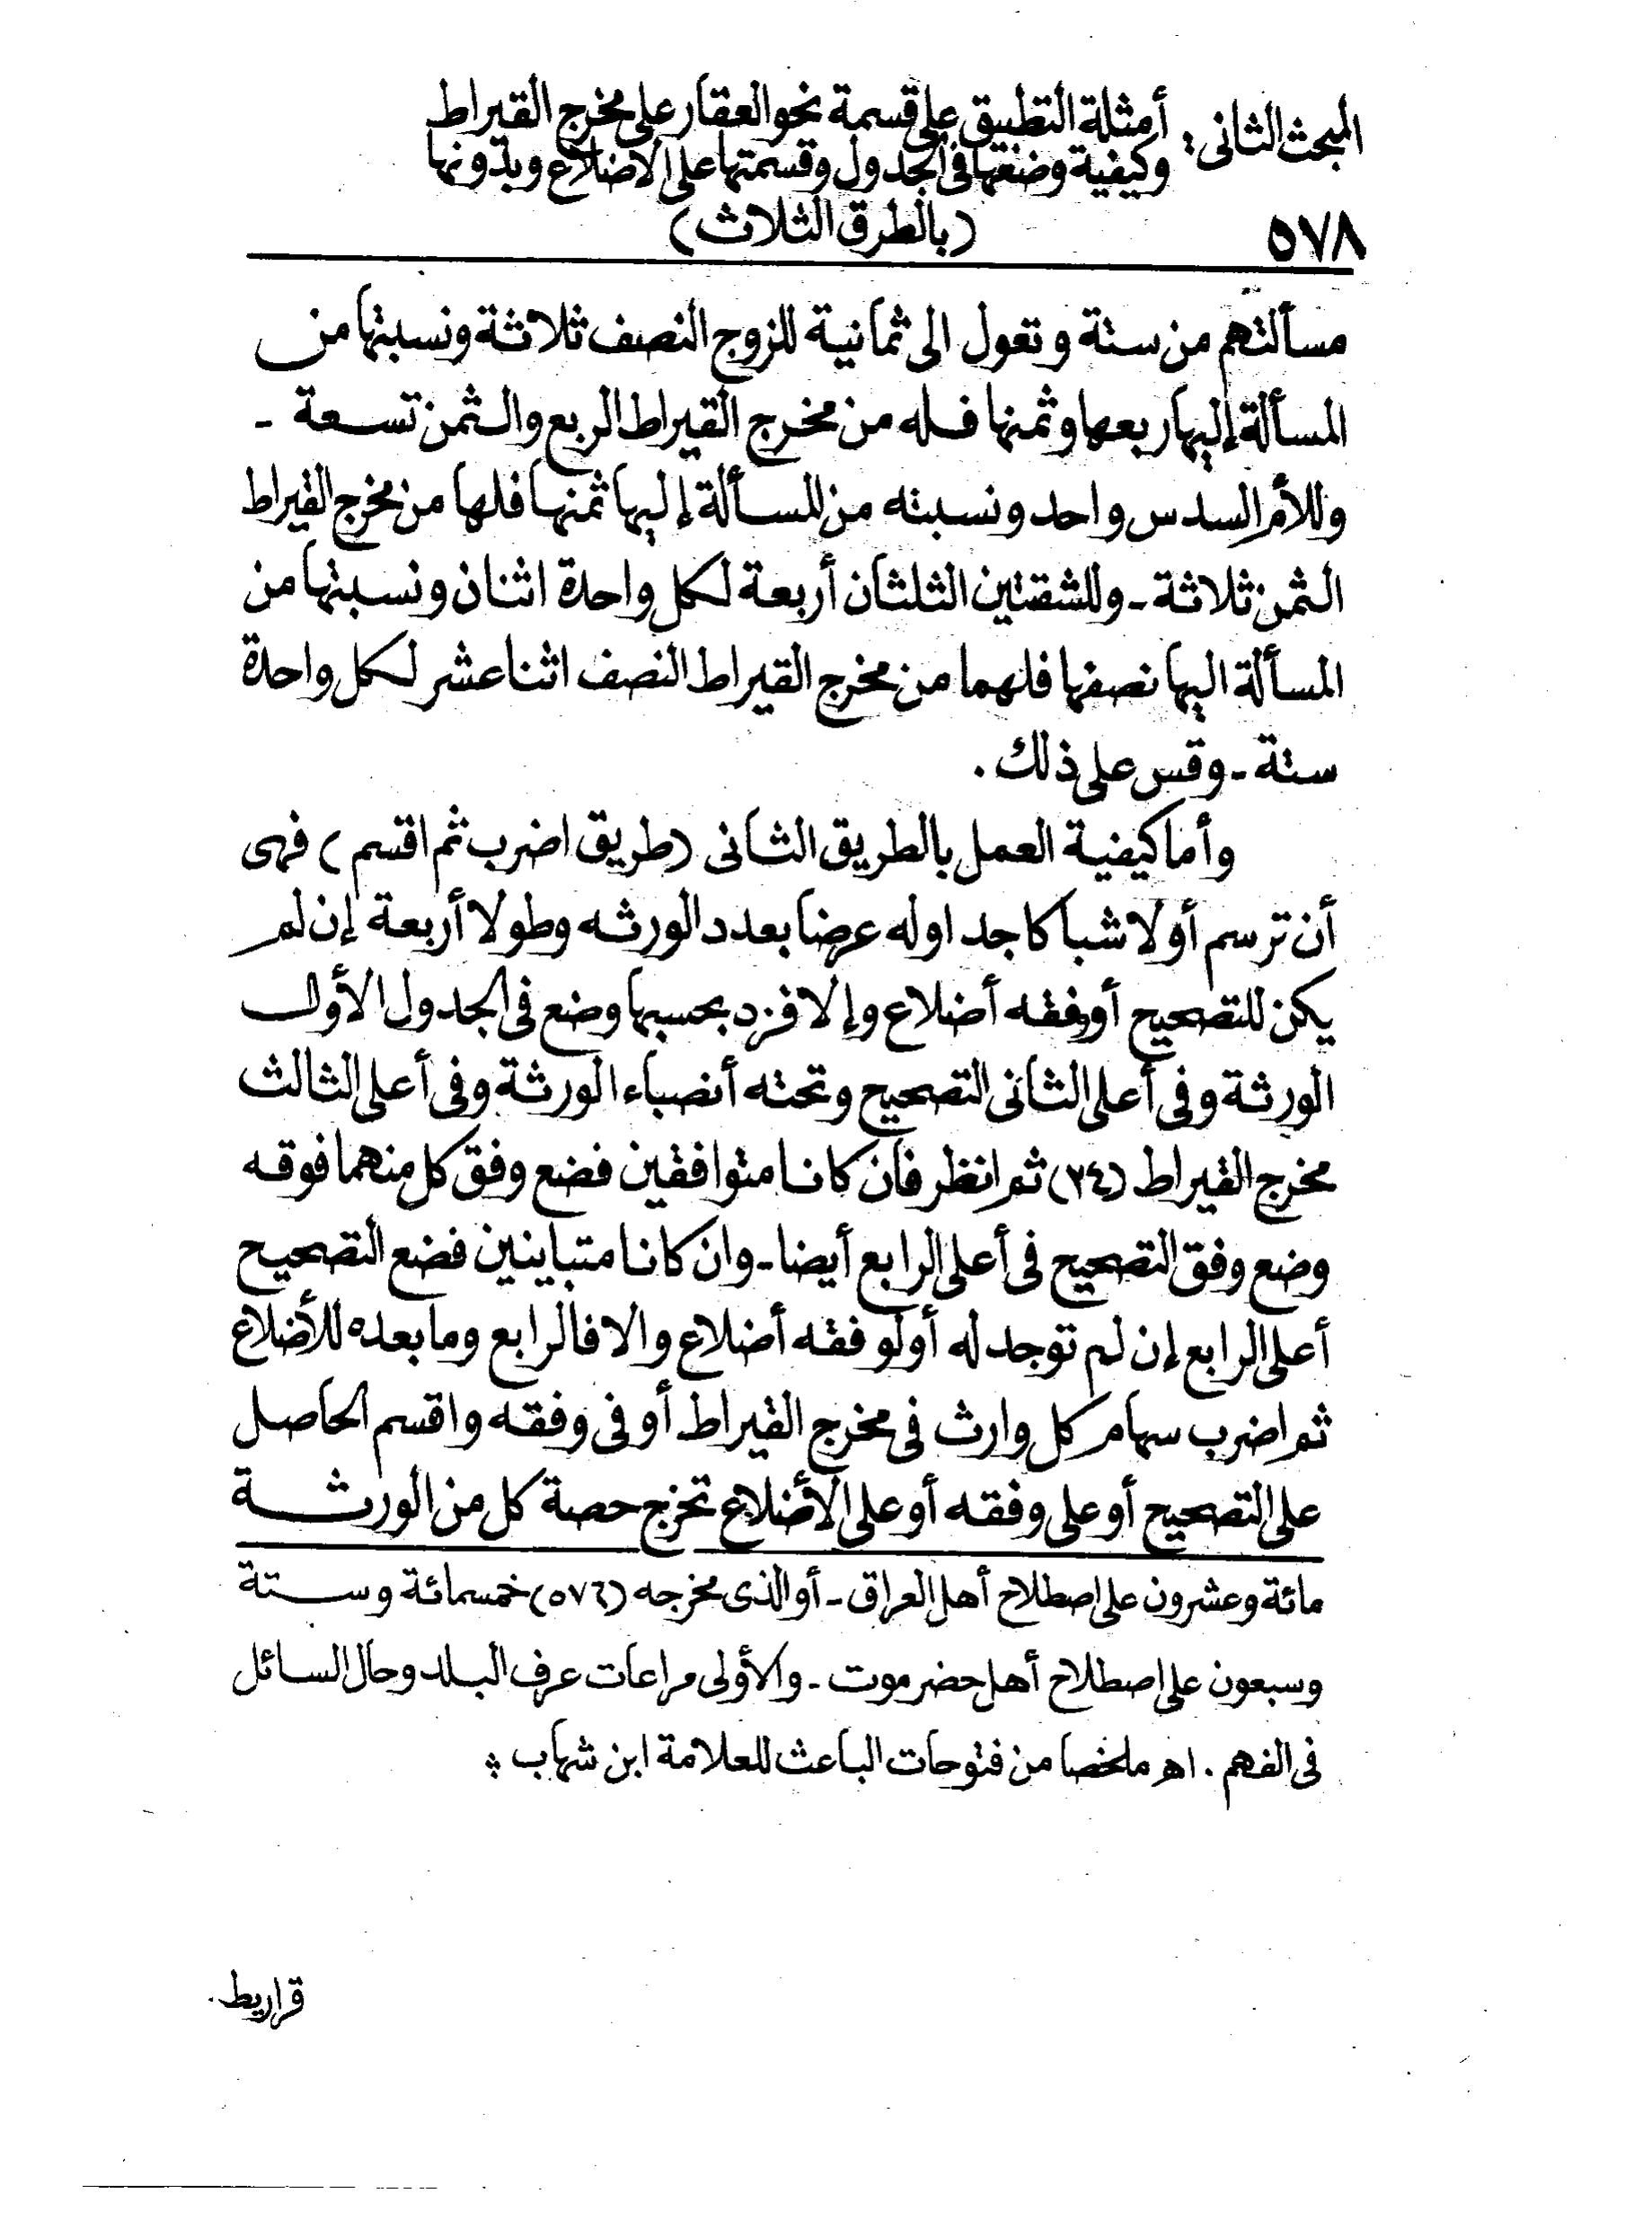 المبحث الثانى: أمثلة التطبيق على قسمة نحو العقار على مخرج القيراط
وكيفية وضعها فى الجدول وقسمتها على الاضلاع وبدونها
(بالطرق الثلاث)
٥٧٨
مسألتهم من ستة وتعول الى ثمانية للزوج النصف ثلاثة ونسبتها من
المسألة إليها ربعها وثمنها فله من مخرج القيراط الربع والثمن تسعة -
وللأم السدس واحد ونسبته من المسألة إليها ثمنها فلها من مخرج القيراط
الثمن ثلاثة - وللشقتين الثلثان أربعة لكل واحدة اثنان ونسبتها من
المسألة اليها نصفها فلهما من مخرج القيراط النصف اثنا عشر لكل واحدة
ستة - وقس على ذلك .
وأما كيفية العمل بالطريق الثانى (طريق اضرب ثم اقسم) فهى
أن ترسم أولا شباكا جد اوله عرضا بعدد الورثه وطولا أربعة إن لم
يكن للتصحيح أو وفقه أضلاع وإلا فزد بحسبها وضع فى الجدول الأول
الورثة وفى أعلى الثانى التصحيح وتحته أنصباء الورثة وفى أعلى الثالث
مخرج القيراط (٢٤) ثم انظر فان كانا متوافقين فضع وفق كل منهما فوقه
وضع وفق التصحيح فى أعلى الرابع أيضا - وان كانا متباينين فضع التصحيح
أعلى الرابع إن لم توجد له أو لوفقه أضلاع والا فالرابع وما بعده للأضلاع
ثم اضرب سهام كل وارث فى مخرج القيراط أو فى وفقه واقسم الحاصل
على التصحيح أو على وفقه أو على الأضلاع تخرج حصة كل من الورثة
مائة وعشرون على اصطلاح أهل العراق - أو الذى مخرجه (٥٧٦) خمسمائة وستة
وسبعون على اصطلاح أهل حضرموت - والأولى مراعات عرف البلد وحال السائل
فى الفهم . اهـ ملخصا من فتوحات الباعث للعلامة ابن شهاب
قراريط .